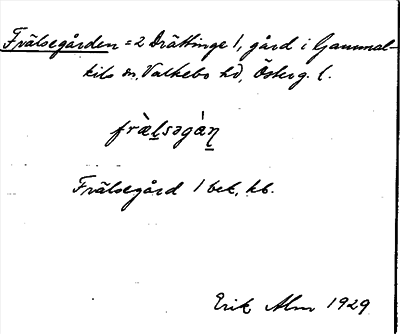 Frälsegården = 2 Drättinge 1, gård i Gammal-
kils sn, Valkebo hd, Österg. l.
fræ̀lsəgàn̲
Frälsegård 1 bet, kb.
Erik Alm 1929